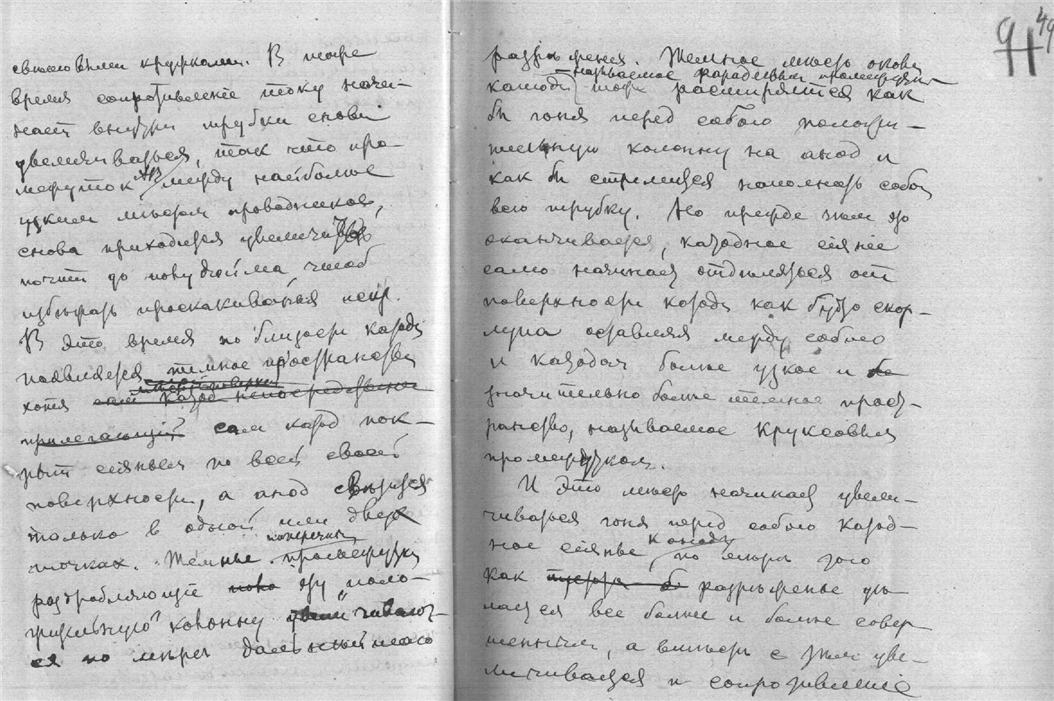 свѣтовыми кружками. В тоже
время сопротивленіе току начи-
нает внутри трубки снова
увеличиваться, так что про-
межуток АВ между наиболее
узким местом проводников,
снова приходится увеличить
почти до полудюйма чтоб
избѣжать проскакиванья искр.
В это время по близости катода
появляется темное пространство
хотя
прилегающій сам катод пок-
рыт сіяньем по всей своей
поверхности, а анод свѣтится
только в одной или двух
точках. Темные поперечные промежутки
раздробляющіе эту поло-
жительную колонну увеличивают-
ся по мѣрѣ дальнейшаго
91
49
разрѣженія. Темное место около
называемое фарадеевым промежутком
катода тоже расширяется как
бы гоня перед собою положи-
тельную колонну на анод и
как бы стремится наполнить собой
всю трубку. Но прежде чем это
оканчивается, катодное сіяніе
само начинает отдѣляться от
поверхности катода как будто скор-
лупа оставляя между собою
и катодом более узкое и
значительно более темное прост-
ранство, называемое Круксовым
промежутком.
И это место начинает увели-
чиваться гоня перед собою катод-
ное сіянье к аноду по мѣрѣ того
как разрѣженье дѣ-
лается все более и более совер-
шенным, а вместе с этим уве-
личивается и сопротивленіе